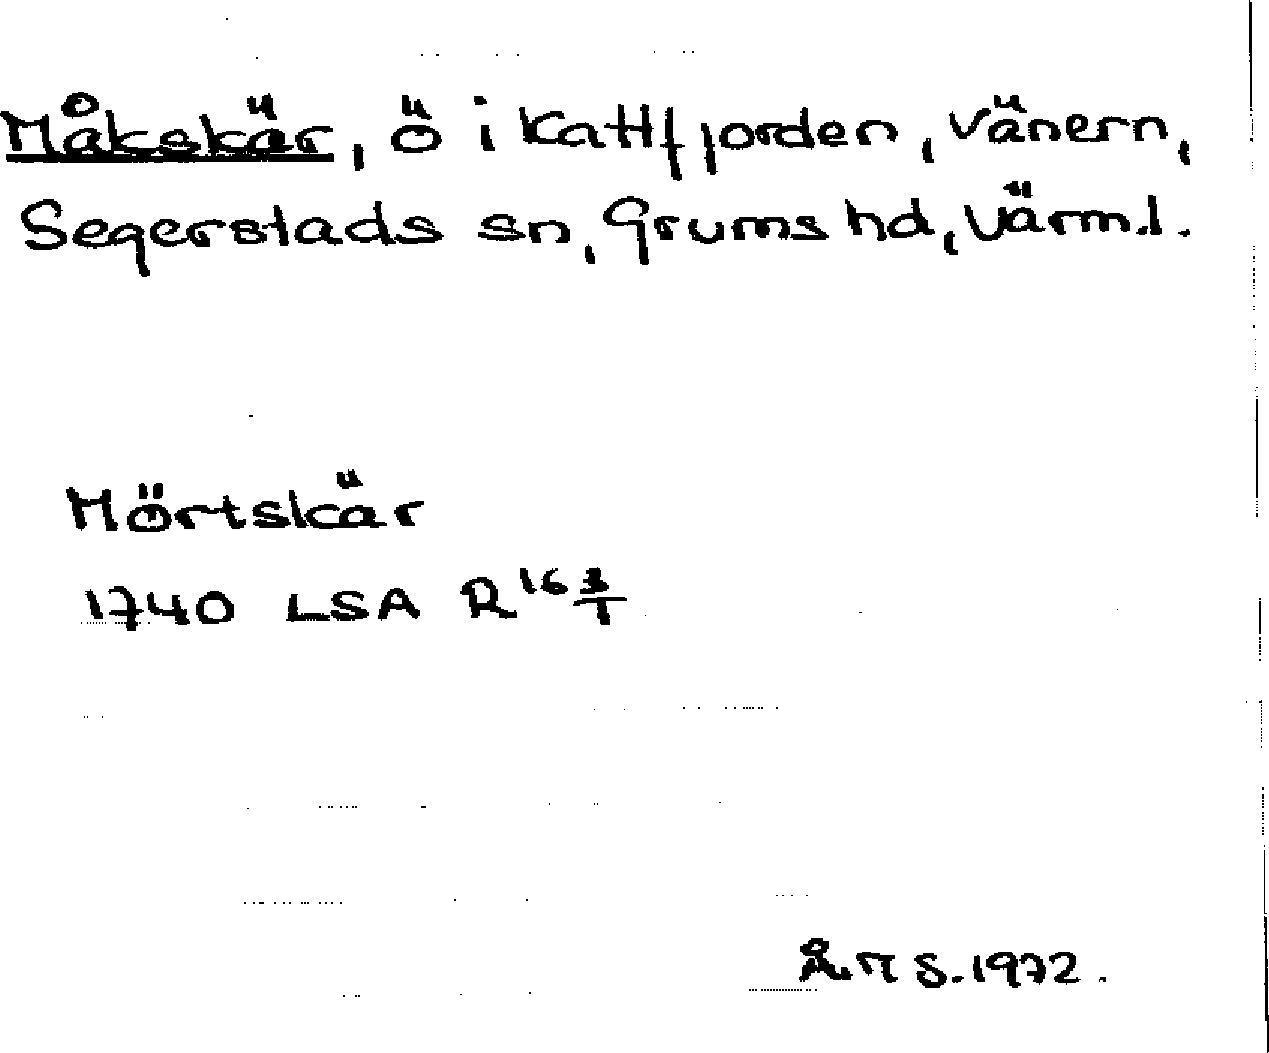 Måkskär, ö i Kattfjorden, Vänern,
Segerstads sn, Grums hd, Värml.
Mörtskär
1740 LSA R 16 3/1
Å. M S. 1972.